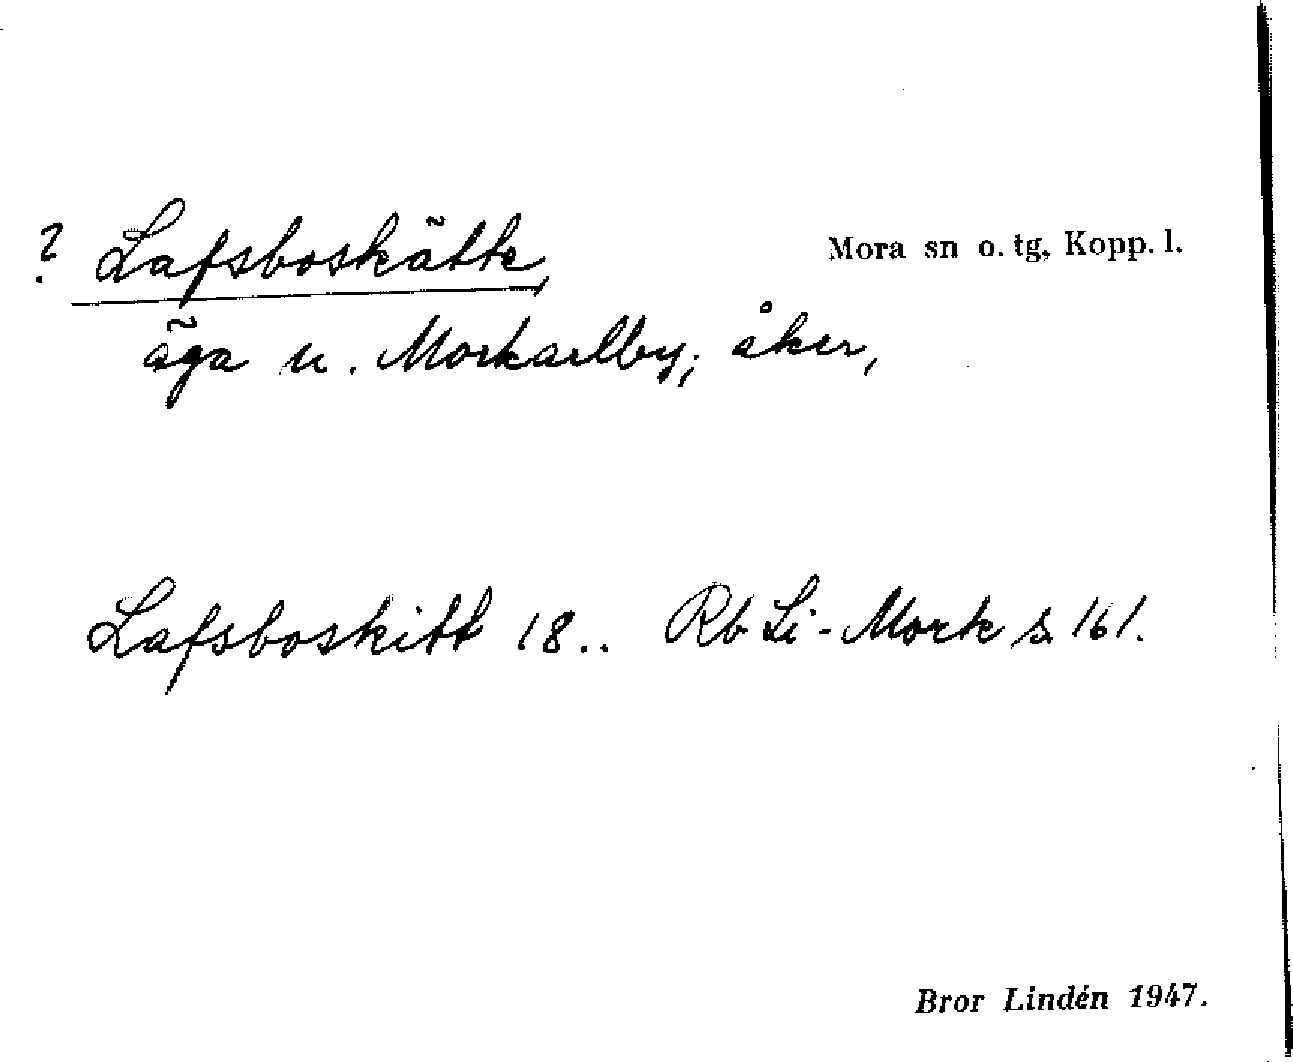 ? Lafsboskätte, Mora sn o. tg, Kopp. l.
äga u. Morkarlby; åker,
Lafsboskitt 18.. Rb Li-Mork s. 161.
Bror Lindén 1947.